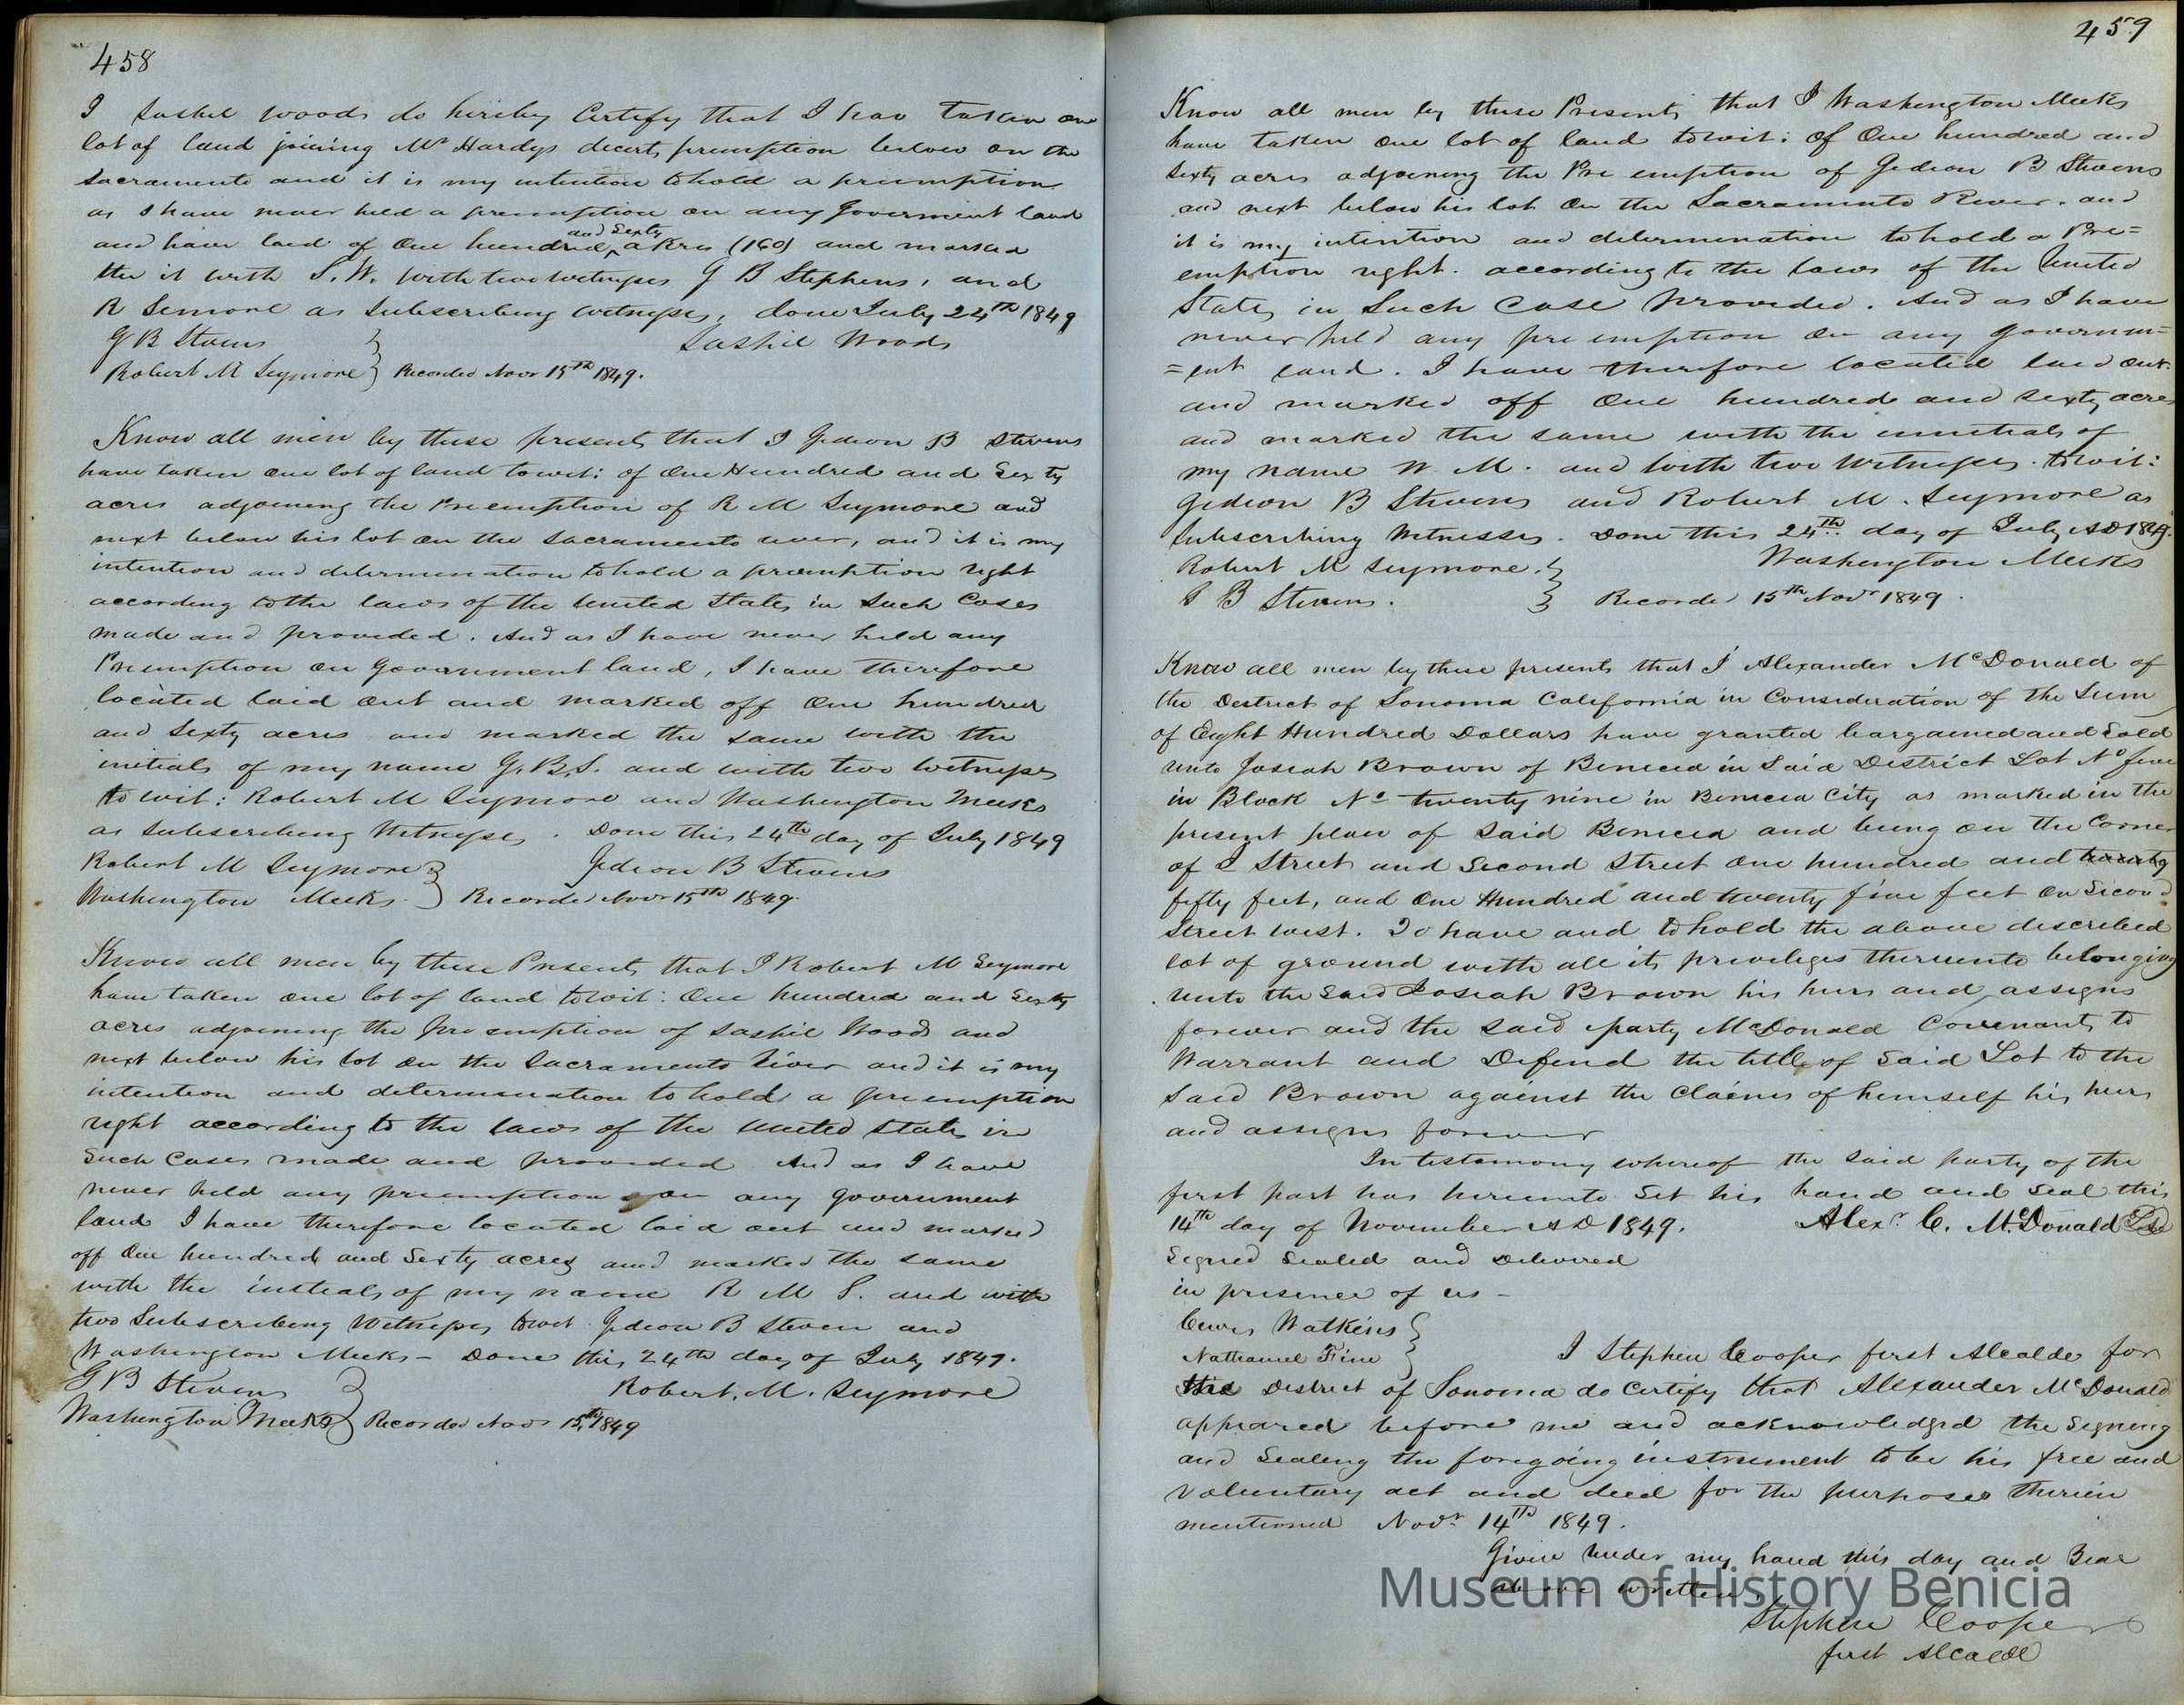 458
I Sashel woods do hereby Certify that I hav taken one
lot of land joining Mr Hardys decert premption below on the
Sacramento and it is my intention to hold a preemption
as I have never held a preemption on any Goverment land
and have laid of One hundred and Sixty akres (160) and marked
the it with S. W. with two witnesses G B Stephens, and
R Semore as Subscribing witnesses, done July 24th 1849
G B Stevens Sashil Woods
Robert M Seymore } Recorded Novr 15th 1849.
Know all men by these presents that I Gideon B Stevens
have taken one lot of land to wit: of One Hundred and Sixty
acres adjoining the Preemption of R M Seymore and
next below his lot on the Sacramento river, and it is my
intention and determination to hold a preemption right
according to the laws of the United States in Such Cases
made and provided. And as I have never held any
Preemption on Government land, I have therefore
located laid out and marked off One hundred
and Sixty acres and marked the same with the
initials of my name G. B. S. and with two Witnesses
to wit: Robert M Seymore and Washington Meeks
as Subscribing Witnesses. Done this 24th day of July 1849
Robert M Seymore Gideon B Stevens
Washington Meeks } Recorded Novr 15th 1849.
Know all men by these Presents that I Robert M Seymore
have taken one lot of land to wit: One hundred and Sixty
acres adjoining the Pre emption of Sashil Woods and
next below his lot on the Sacramento River and it is my
intention and determination to hold a preemption
right according to the laws of the United States in
Such Cases made and provided And as I have
never held any preemption on any government
land I have therefore located laid out and marked
off One hundred and Sixty acres and marked the same
with the initials of my name R M S. and with
two Subscribing Witnesses to wit Gideon B Steven and
Washington Meeks - Done this 24th day of July 1849.
G B Stevens Robert. M. Seymore
Washington Meeks } Recorded Novr 15th 1849
459
Know all men by these Presents that I Washington Meeks
have taken one lot of land to wit: of One hundred and
Sixty acres adjoining the Pre emption of Gideon B Stevens
and next below his lot on the Sacramento River. and
it is my intention and determination to hold a Pre=
emption right. according to the laws of the United
States in Such Case provided. And as I have
never held any pre emption on any governm=
=ent land. I have therefore located laid out
and marked off One hundred and sixty acres
and marked the same with the innitials of
my name W. M. and with two Witnesses. to wit:
Gideon B Stevens and Robert M. Seymore as
Subscribing Witnesses. Done this 24th day of July AD 1849.
Robert M Seymore. } Washington Meeks
G B Stevens. } Recorded 15th Novr 1849.
Know all men by these presents that I Alexander McDonald of
the District of Sonoma California in Consideration of the Sum
of Eight Hundred Dollars have granted bargained and Sold
unto Josiah Brown of Benicia in Said District Lot No five
in Block No twenty nine in Benicia City as marked in the
present plan of Said Benicia and being on the Corner
of I Street and Second Street One hundred and twenty
fifty feet, and One Hundred and twenty five feet on Second
Street west. To have and to hold the above described
lot of ground with all its privileges thereunto belonging
unto the Said Josiah Brown his heirs and assigns
forever and the Said party McDonald Covenants to
Warrant and Defend the title of Said Lot to the
Said Brown against the Claims of himself his heirs
and assigns forever
In testamony whereof the Said party of the
first part has hereunto Set his hand and Seal this
14th day of November AD 1849. Alexr. C. McDonald
Signed Sealed and Delivered
in presence of us -
Lewis Watkins
Nathaniel Fine } I Stephen Cooper first Alcalde for
this District of Sonoma do Certify that Alexander McDonald
appeared before me and acknowledged the Signing
and Sealing the foregoing instrument to be his free and
voluntary act and deed for the purposes therein
mentioned Novr 14th 1849.
Given under my hand this day and Year
above written
Stephen Cooper
first Alcalde
Museum of History Benicia